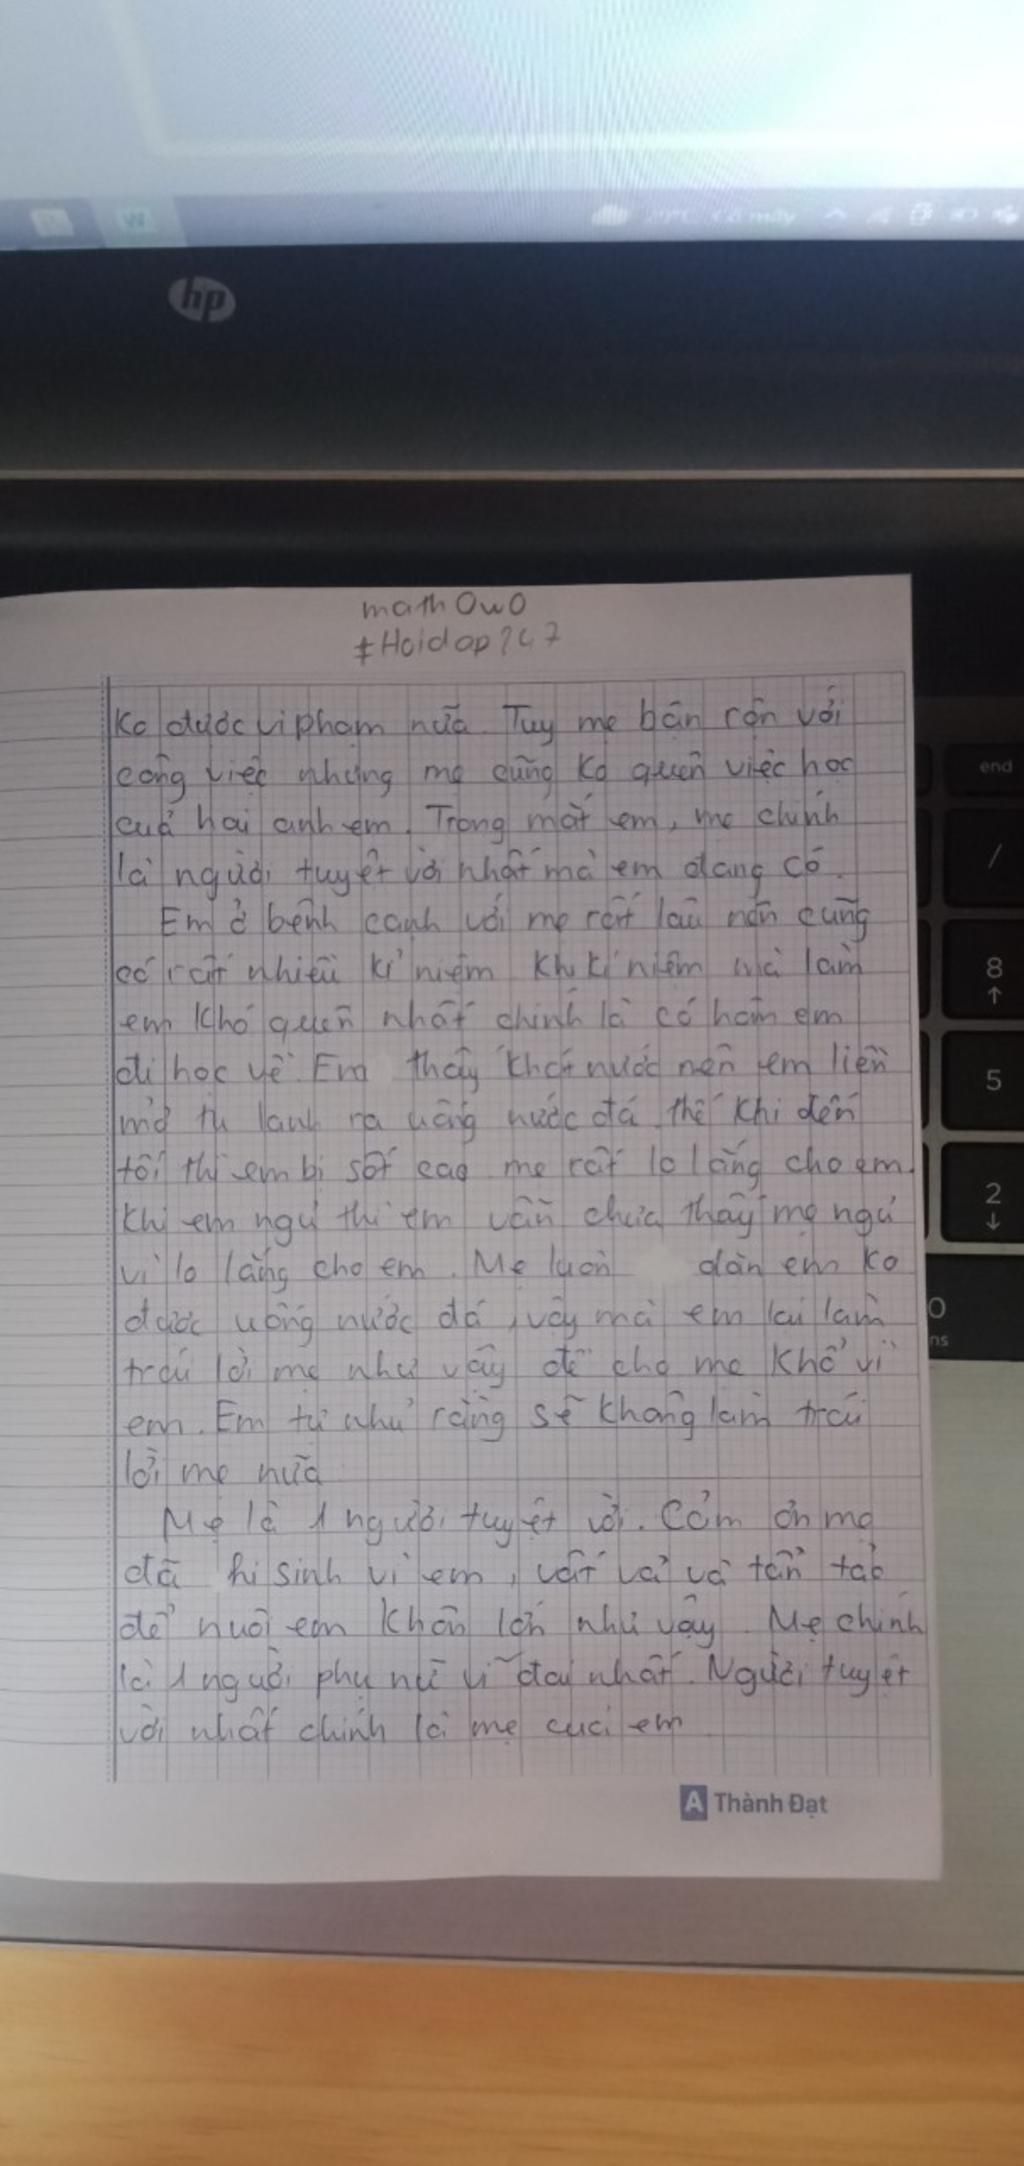 hp
math OwO
#Hoidap247
Ko được vi phạm nữa. Tuy mẹ bận rộn với
công việc nhưng mẹ cũng ko quên việc học
của hai anh em. Trong mắt em, mẹ chính
là người tuyệt vời nhất mà em đang có.
Em ở bênh cạnh với mẹ rất lâu nên cũng
có rất nhiều kỉ niệm kỉ niệm mà làm
em khó quên nhất chính là có hôm em
đi học về. Em thấy khát nước nên em liền
mở tủ lạnh ra uống nước đá thế khi đến
tối thì em bị sốt cao mẹ rất lo lắng cho em.
Khi em ngủ thì em vẫn chưa thấy mẹ ngủ
vì lo lắng cho em. Mẹ luôn dặn em ko
được uống nước đá, vậy mà em lại làm
trái lời mẹ như vậy để cho mẹ khổ vì
em. Em tự nhủ rằng sẽ không làm trái
lời mẹ nữa
Mẹ là 1 người tuyệt vời. Cảm ơn mẹ
đã hi sinh vì em, vất vả và tần tảo
để nuôi em khôn lớn như vậy. Mẹ chính
là 1 người phụ nữ vĩ đại nhất. Người tuyệt
vời nhất chính là mẹ của em
A Thành Đạt
end
/
8
5
2
0
ns